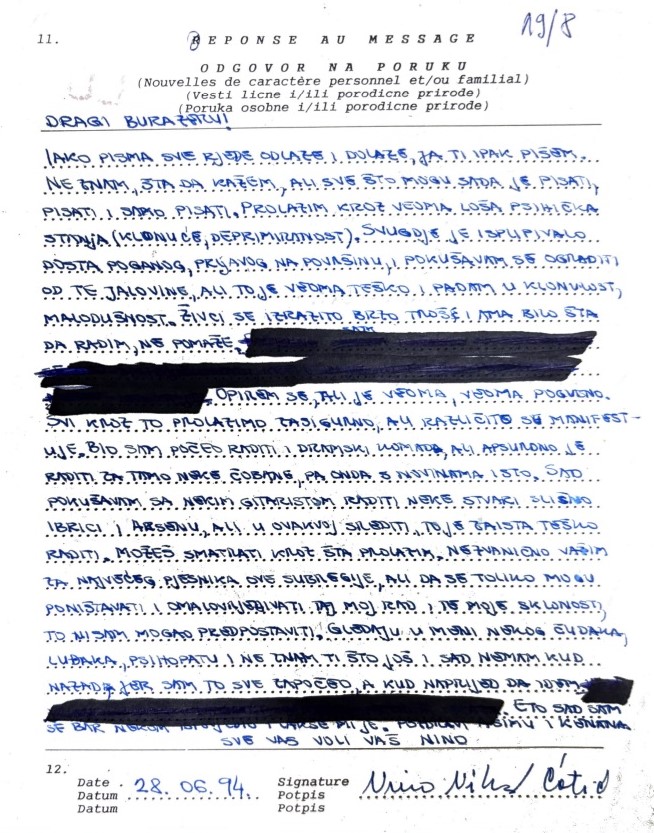 11.
REPONSE AU MESSAGE
19/8
ODGOVOR NA PORUKU
(Nouvelles de caractère personnel et/ou familial)
(Vesti licne i/ili porodicne prirode)
(Poruka osobne i/ili porodicne prirode)
DRAGI BURAZERU!
IAKO PISMA SVE RJEĐE ODLAZE I DOLAZE, JA TI IPAK PIŠEM.
NE ZNAM, ŠTA DA KAŽEM, ALI SVE ŠTO MOGU SADA JE PISATI,
PISATI I SAMO PISATI. PROLAZIM KROZ VEOMA LOŠA PSIHIČKA
STANJA (KLONUĆE, DEPRIMIRANOST). SVUGDJE JE ISPLIVALO
DOSTA POGANOG, PRLJAVOG NA POVRŠINU, I POKUŠAVAM SE OGRADITI
OD TE JALOVINE, ALI TO JE VEOMA TEŠKO I PADAM U KLONULOST,
MALODUŠNOST. ŽIVCI SE IZRAZITO BRZO TROŠE I MA BILO ŠTA
SAM
DA RADIM, NE POMAŽE.
OPIREM SE, ALI JE VEOMA, VEOMA POGUBNO.
SVI KROZ TO PROLAZIMO ZASIGURNO, ALI RAZLIČITO SE MANIFEST-
UJE. BIO SAM POČEO RADITI I DRAMSKI KOMAD, ALI APSURDNO JE
RADITI ZA TAMO NEKE ČOBANE, PA ONDA S NOVINAMA ISTO. SAD
POKUŠAVAM SA NEKIM GITARISTOM RADITI NEKE STVARI SLIČNO
IBRICI I ARSENU, ALI U OVAKVOJ SREDITI, TO JE ZAISTA TEŠKO
RADITI. MOŽEŠ SMATRATI KROZ ŠTA PROLAZIM. NEZVANIČNO VAŽIM
ZA NAJVEĆEG PJESNIKA OVE SUBREGIJE, ALI DA SE TOLIKO MOGU
PONIŠTAVATI I OMALOVAŽIVATI TAJ MOJ RAD I TE MOJE SKLONOSTI,
TO NISAM MOGAO PREDPOSTAVITI. GLEDAJU U MENI NEKOG ČUDAKA,
LUĐAKA, PSIHOPATU I NE ZNAM TI ŠTO JOŠ I SAD NEMAM KUD
NAZAD, JER SAM TO SVE ZAPOČEO, A KUD NAPRIJED DA IDEM
ETO SAD SAM
SE BAR NEKOM I LAKŠE MI JE. POZDRAVI I KENANA
SVE VAS VOLI VAŠ NINO
12.
Date 28.06.94. Signature Nino
Datum Potpis
Datum Potpis